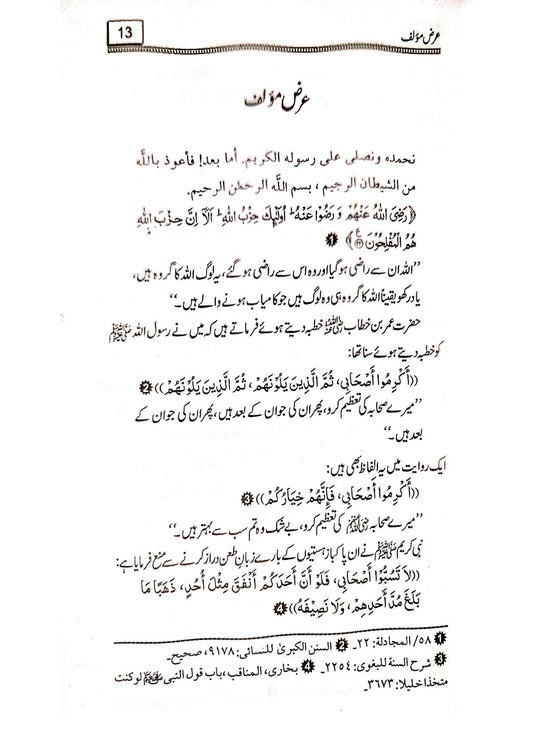 13
عرض مؤلف
عرض مؤلف
نحمده ونصلی علی رسوله الکریم. أما بعد! فأعوذ باللّٰه
من الشیطان الرجیم ، بسم اللّٰه الرحمٰن الرحیم.
﴿رَضِیَ اللّٰهُ عَنْهُمْ وَ رَضُوْا عَنْهُ ؕ اُولٰٓىِٕكَ حِزْبُ اللّٰهِ ؕ اَلَاۤ اِنَّ حِزْبَ اللّٰهِ
هُمُ الْمُفْلِحُوْنَ﴾ ❶
’’اللہ ان سے راضی ہوگیا اور وہ اس سے راضی ہوگئے، یہ لوگ اللہ کا گروہ ہیں،
یاد رکھو یقیناً اللہ کا گروہ ہی وہ لوگ ہیں جو کامیاب ہونے والے ہیں۔‘‘
حضرت عمر بن خطاب رضی اللہ عنہ خطبہ دیتے ہوئے فرماتے ہیں کہ میں نے رسول اللہ ﷺ
کو خطبہ دیتے ہوئے سنا تھا:
((أَكْرِمُوا أَصْحَابِي، ثُمَّ الَّذِينَ يَلُونَهُمْ، ثُمَّ الَّذِينَ يَلُونَهُمْ)) ❷
’’میرے صحابہ کی تعظیم کرو، پھر ان کی جو ان کے بعد ہیں، پھر ان کی جو ان کے
بعد ہیں۔‘‘
ایک روایت میں یہ الفاظ بھی ہیں:
((أَكْرِمُوا أَصْحَابِي، فَإِنَّهُمْ خِيَارُكُمْ)) ❸
’’میرے صحابہ رضی اللہ عنہم کی تعظیم کرو، بے شک وہ تم سب سے بہتر ہیں۔‘‘
نبی کریم ﷺ نے ان پاکباز ہستیوں کے بارے زبانِ طعن دراز کرنے سے منع فرمایا ہے:
((لَا تَسُبُّوا أَصْحَابِي، فَلَوْ أَنَّ أَحَدَكُمْ أَنْفَقَ مِثْلَ أُحُدٍ، ذَهَبًا مَا
بَلَغَ مُدَّ أَحَدِهِمْ، وَلَا نَصِيفَهُ)) ❹
❶ ٥٨/ المجادلة: ٢٢۔ ❷ السنن الکبریٰ للنسائی: ٩١٧٨، صحیح۔
❸ شرح السنة للبغوی: ٢٢٥٤۔ ❹ بخاری، المناقب، باب قول النبی ﷺ لو کنت
متخذا خلیلا: ٣٦٧٣۔